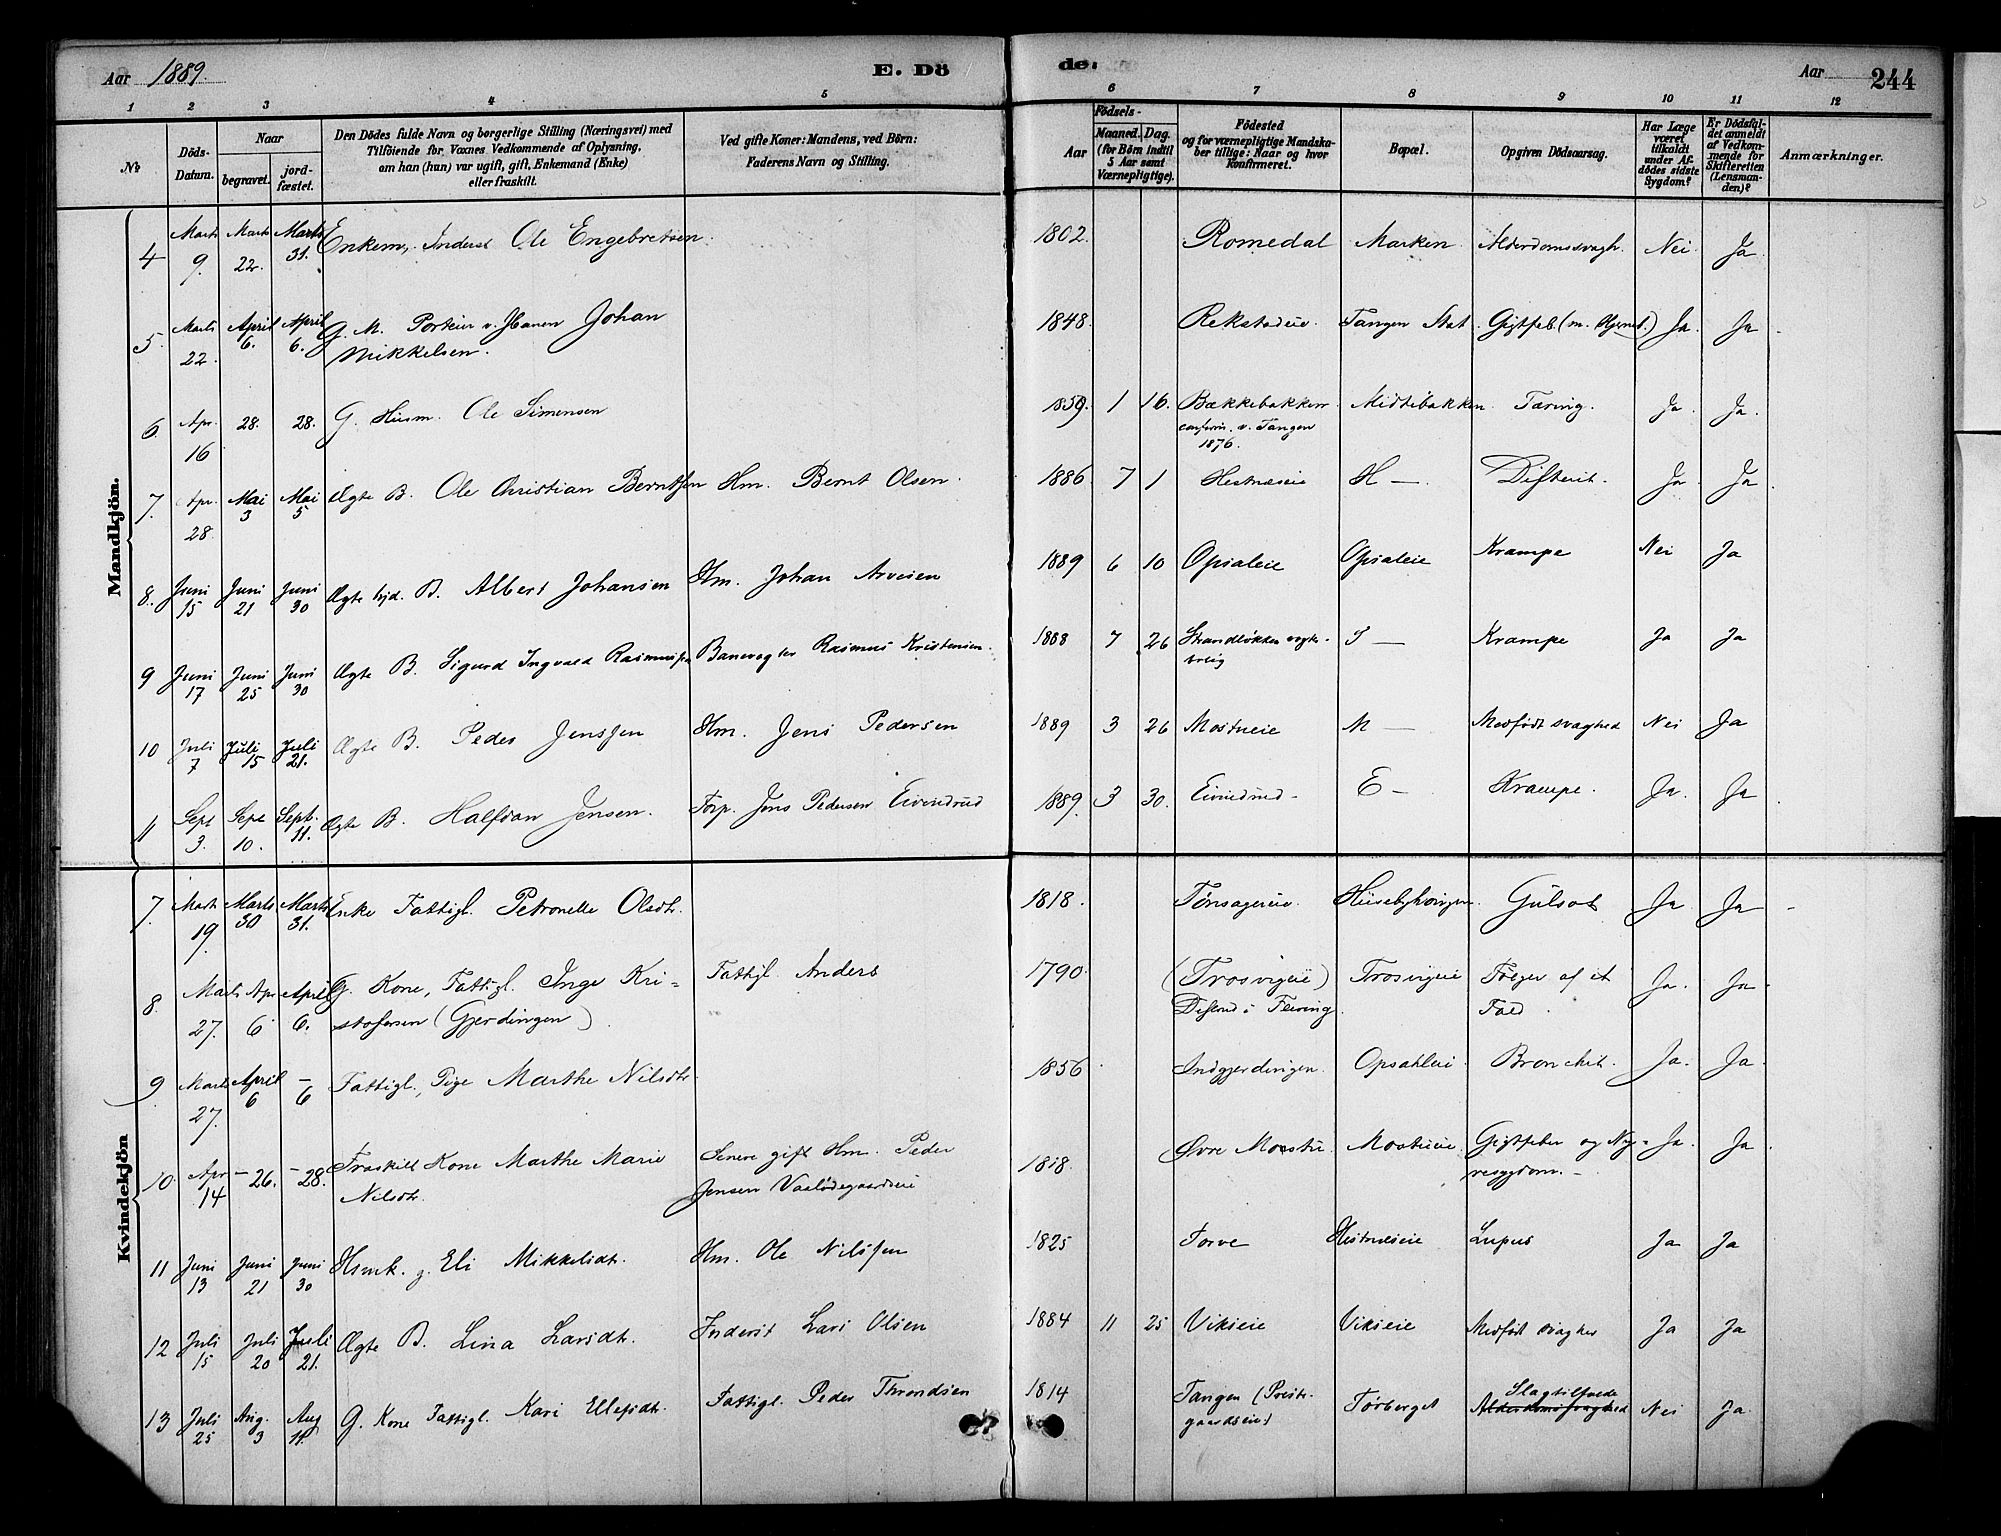 Aar 1889.
E. Dö
de:
Aar
244
1 2 3 4 5 6 7 8 9 10 11 12
№
Döds-Datum.
Naar
begravet.
jord-fæstet.
Den Dödes fulde Navn og borgerlige Stilling (Næringsvei) med
Tilföiende for Voxnes Vedkommende af Oplysning,
om han (hun) var ugift, gift, Enkemand (Enke)
eller fraskilt.
Ved gifte Koner: Mandens, ved Börn:
Faderens Navn og Stilling.
Aar
Födsels-
Maaned. Dag.
(for Börn indtil
5 Aar samt
Værnepligtige).
Födested
og for værnepligtige Mandska-
ber tillige: Naar og hvor
Konfirmeret.
Bopæl.
Opgiven Dödsaarsag.
Har Læge
været
tilkaldt
under Af-
dödes sidste
Sygdom?
Er Dödsfal-
det anmeldt
af Vedkom-
mende for
Skifteretten
(Lensman-
den)?
Anmærkninger.
Mandkjön.
4 Marts 9. Marts 22. Marts 31. Enkem., Inderst Ole Engebretsen. 1802. Romedal Marken Alderdomssvagh. Nei Ja
5. Marts 22 April 6. April 6. G. M. Johan 1848. Tangen Stat. Ja. Ja
Mikkelsen.
6. Apr. 16 28. 28. G. Husm. Ole Simensen 1859. 1 16. Bækkebakken Midtibakken Tæring. Ja Ja.
confirm. v. Tangen
1876.
7. Apr. 28. Mai 3 Mai 5 Ægte B. Ole Christian Berntsen Hm. Bernt Olsen. 1886 7 1 Hestnæseie H — Difterit. Ja Ja
8. Juni 15 Juni 21 Juni 30 Ægte B. Albert Johansen Hm. Johan Arvesen 1889 6 10 Opsaleie Opsaleie Krampe Nei Ja
9 Juni 17 Juni 25 Juni 30 Ægte B. Sigurd Ingvald Rasmussen Banevogter Rasmus Kristensen. 1888 7 26 Strandløkken vogter- S — Krampe Ja Ja
bolig
10 Juli 7 Juli 15 Juli 21. Ægte B. Peder Jenssen Hm. Jens Pedersen 1889 3 26 Mostueie M — Medfødt svaghed Nei Ja
11 Sept 3. Sept 10. Sept. 11. Ægte B. Halfdan Jensen. Forp. Jens Pedersen Eivindrud 1889. 3 30. Eivindrud. E — Krampe. Ja. Ja
Kvindekjön
7. Marts 19. Marts 30 Marts 31. Enke Fattigl. Petronelle Olsdtr. 1818. Gulsot Ja Ja
8. Marts 27. Apr 6 April 6. G. Kone, Fattigl. Inge Kri= Fattigl. Anders 1790. (Trosvigeie) Trosvigeie Følger af et Ja. Ja.
stofersen (Gjerdingen) i Feiring Fald.
9. Marts 27. April 6 — 6 Fattigl. Pige Marthe Nilsdtr. 1856 Indgjerdingen Opsahleie. Bronchit. Ja. Ja.
10. Apr 14 — 26. — 28. Fraskilt Kone Marthe Marie Senere gift Hm. Peder 1818. Øvre Mostu. Mostueie Gigtfeber og Ny= Ja. Ja
Nilsdtr. Jensen resygdom.
11 Juni 13 Juni 21 Juni 30 Hsmk. g. Eli Mikkelsdt. Hm. Ole Nilssen 1825 Torve Hestnæseie Lupus Ja Ja
12 Juli 15 Juli 20 Juli 21. Ægte B. Lina Larsdt. Inderst Lars Olsen 1884 11 25 Vikseie Vikseie Medfødt svaghed Ja Ja
13 Juli 25 Aug. 3 Aug 11. G. Kone Fattigl. Kari Ellefsdt. Fattigl. Peder Throndsen 1814 Tangen (Prest- Tørberget Slagtilfælde Nei Ja.
gaardseie) Alderdomssvaghed